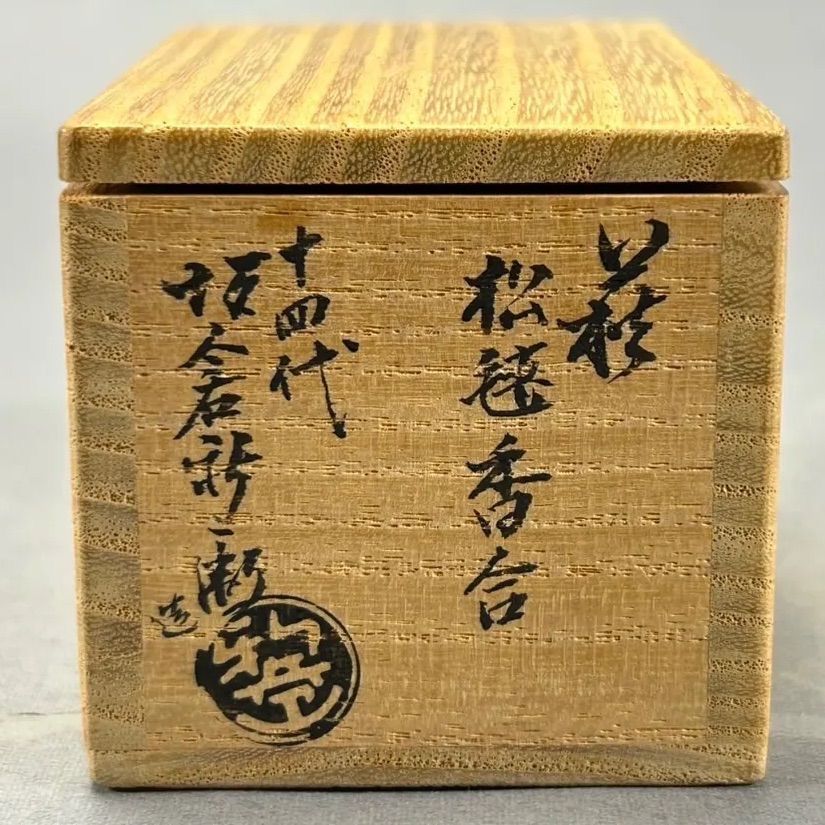 萩
松毬香合
十四代
坂倉新兵衛
造